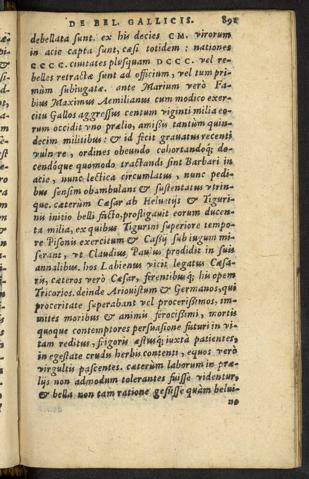 DE BEL. GALLICIS. 891
debellata sunt. ex his decies CM. virorum
in acie capta sunt, cæsi totidem: nationes
CCCC. ciuitates plusquam DCCC. vel re-
belles retractæ sunt ad officium, vel tum pri-
mùm subiugatæ. ante Marium verò Fa-
bius Maximus Aemilianus cum modico exer-
citu Gallos aggressus centum viginti milia eo-
rum occidit vno prælio, amissis tantùm quin-
decim militibus: & id fecit grauatus recenti
vulnere, ordines obeundo cohortandoq́; do-
cendóque quomodo tractandi sint Barbari in
acie, nunc lectica circumlatus, nunc pedi-
bus sensim obambulans & sustentatus vtrin-
que. cæterùm Cæsar ab Heluetijs & Tiguri-
nis initio belli facto, profligauit eorum ducen-
ta milia, ex quibus Tigurini superiore tempo-
re Pisonis exercitum & Cassij sub iugum mi-
serant, vt Claudius Paulus prodidit in suis
annalibus. hos Labienus vicit legatus Cæsa-
ris, cæteros verò Cæsar, ferentibusq́; his opem
Tricorios. deinde Ariouistum & Germanos, qui
proceritate superabant vel procerissimos, im-
mites moribus & animis ferocissimi, mortis
quoque contemptores persuasione futuri in vi-
tam reditus, frigoris æstusq́; iuxtà patientes,
in egestate crudis herbis contenti, equos verò
virgultis pascentes. cæterùm laborum in præ-
lijs non admodum tolerantes fuisse videntur,
& bella non tam ratione gessisse quàm belui-
no